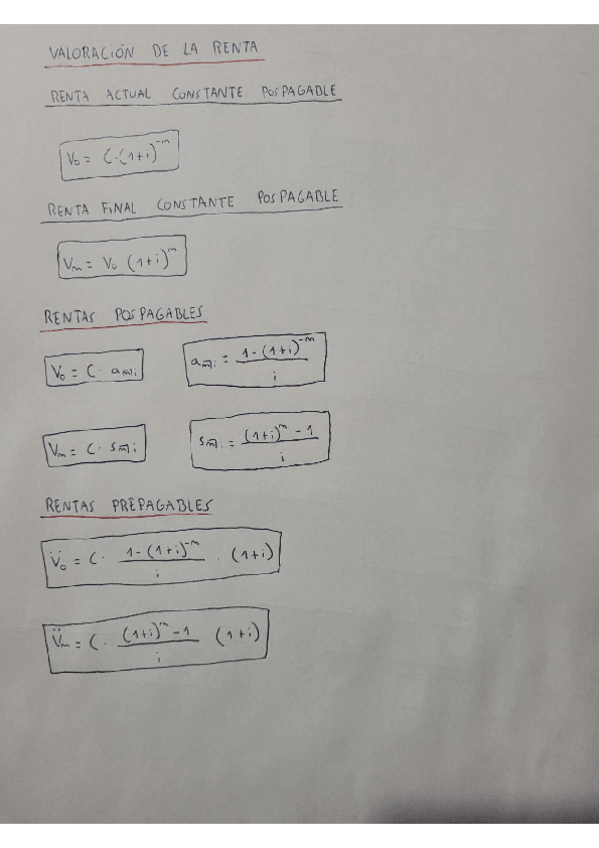 VALORACIÓN DE LA RENTA
RENTA ACTUAL CONSTANTE POSPAGABLE
V₀ = C·(1+i)⁻ⁿ
RENTA FINAL CONSTANTE POSPAGABLE
Vₙ = V₀ (1+i)ⁿ
RENTAS POSPAGABLES
V₀ = C · aₙ̅|ᵢ    aₙ̅|ᵢ = (1-(1+i)⁻ⁿ)/i
Vₙ = C · sₙ̅|ᵢ    sₙ̅|ᵢ = ((1+i)ⁿ - 1)/i
RENTAS PREPAGABLES
V̈₀ = C · (1-(1+i)⁻ⁿ)/i · (1+i)
V̈ₙ = C · ((1+i)ⁿ - 1)/i (1+i)